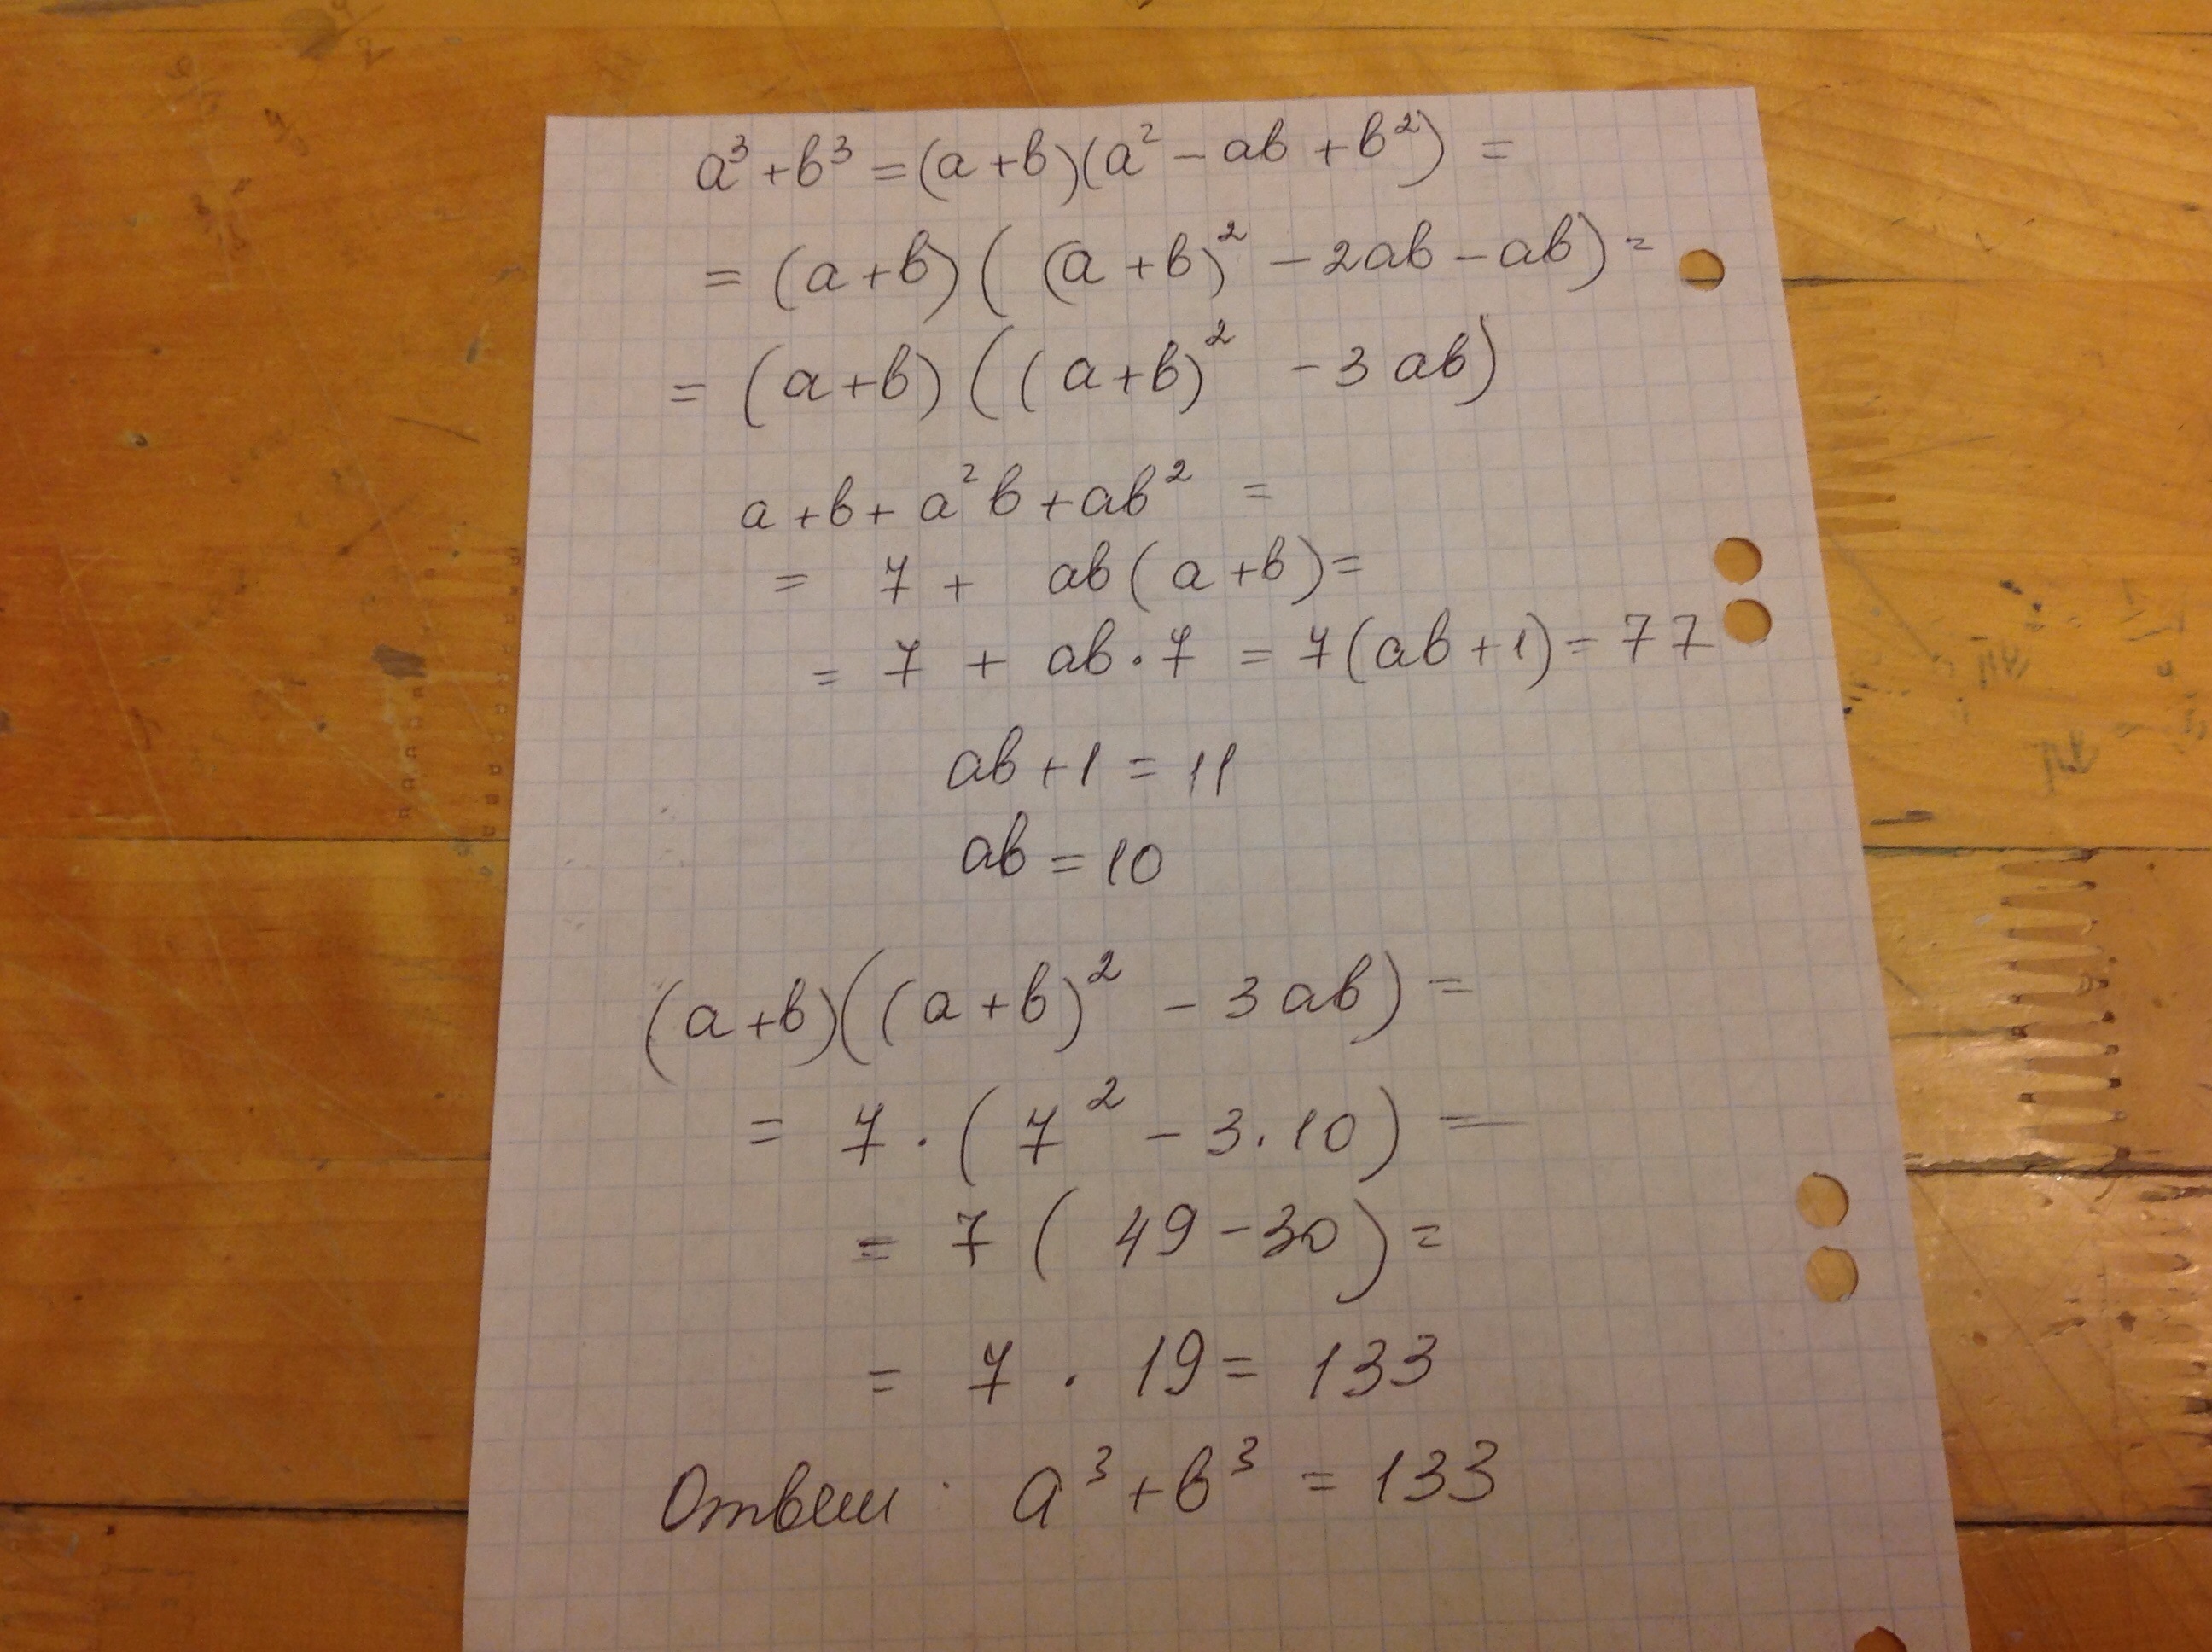 a³+b³=(a+b)(a²-ab+b²)=
=(a+b)((a+b)²-2ab-ab)=
=(a+b)((a+b)²-3ab)
a+b+a²b+ab²=
=7+ab(a+b)=
=7+ab·7=7(ab+1)=77
ab+1=11
ab=10
(a+b)((a+b)²-3ab)=
=7·(7²-3·10)=
=7(49-30)=
=7·19=133
Ответ: a³+b³=133